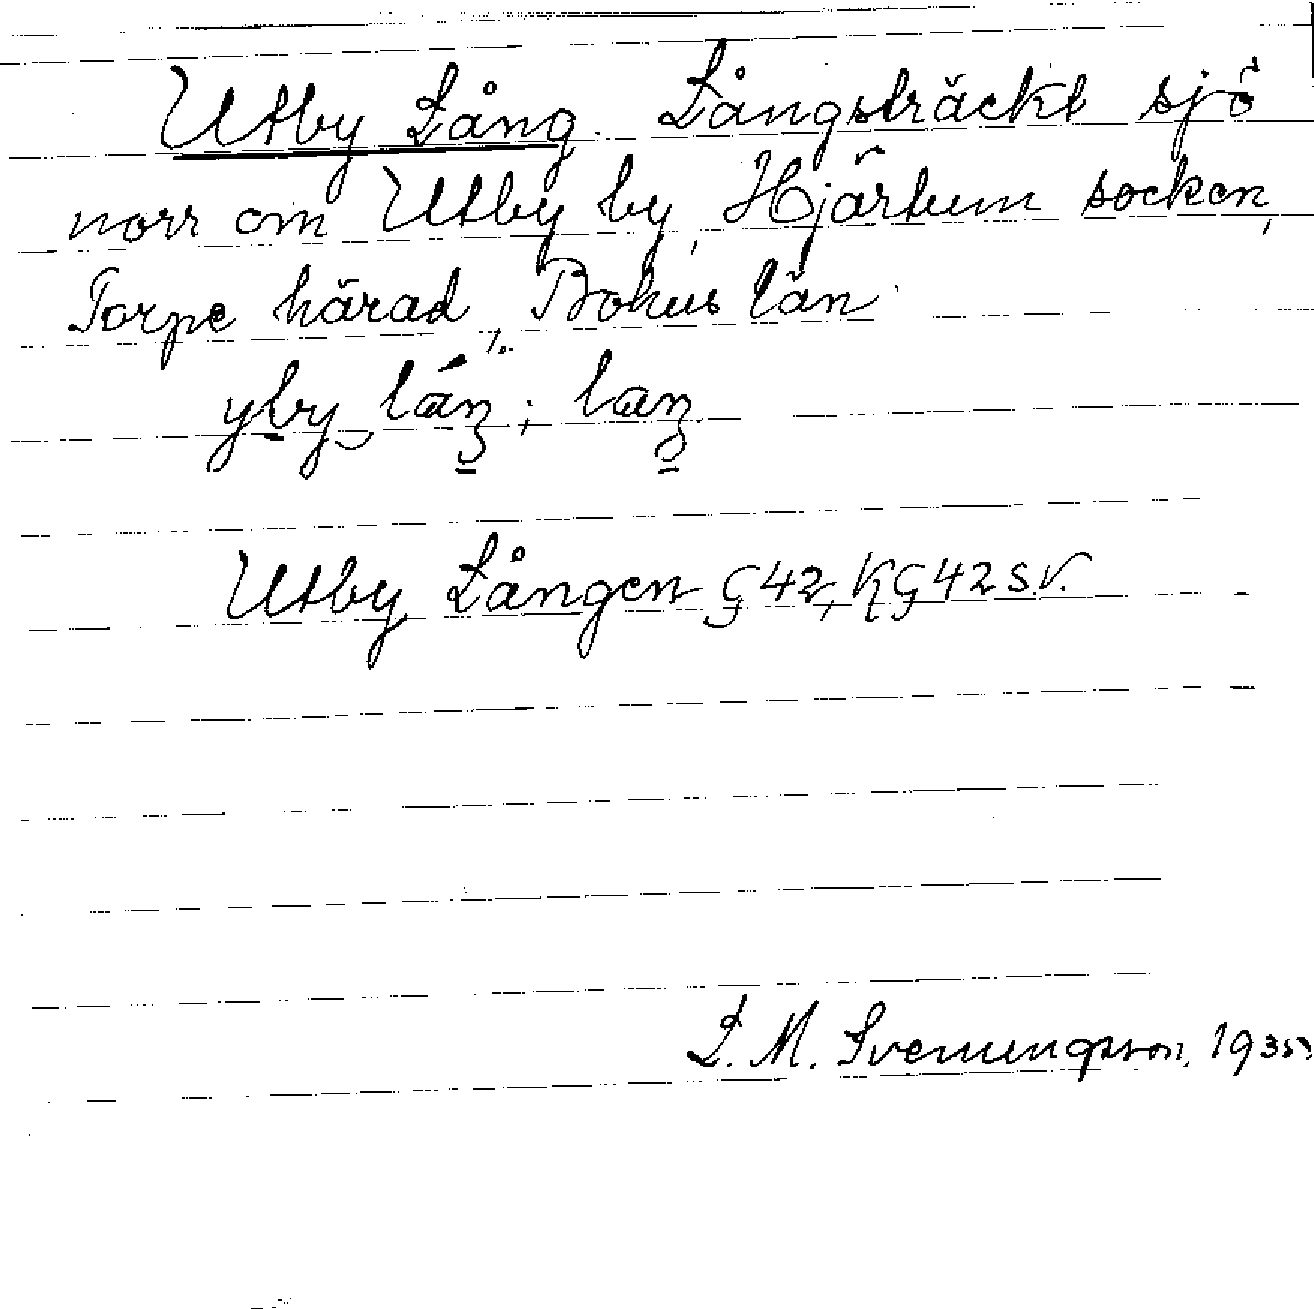 Utby Lång. Långsträckt sjö
norr om Utby by, Hjärtum socken,
Torpe härad, Bohus län
Utby Lången G 42, KG 42 SV.
L. M. Svenungsson, 1935